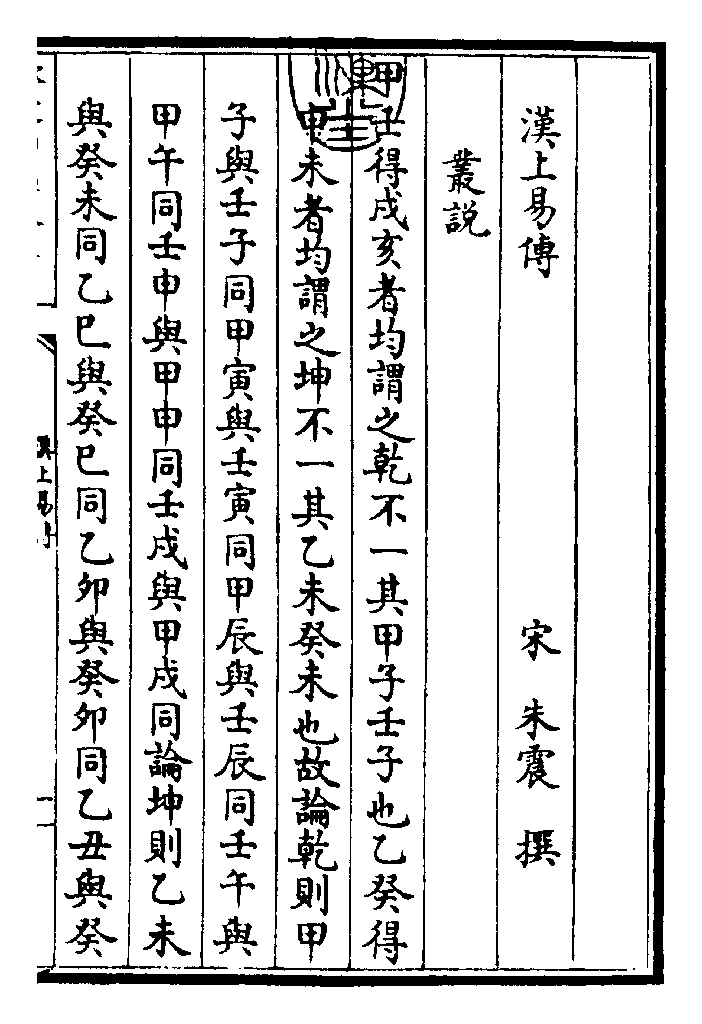 漢上易傳
宋 朱震 撰
叢說
甲壬得戌亥者均謂之乾不一其甲子壬子也乙癸得
申未者均謂之坤不一其乙未癸未也故論乾則甲
子與壬子同甲寅與壬寅同甲辰與壬辰同壬午與
甲午同壬申與甲申同壬戌與甲戌同論坤則乙未
與癸未同乙巳與癸巳同乙卯與癸卯同乙丑與癸
漢上易